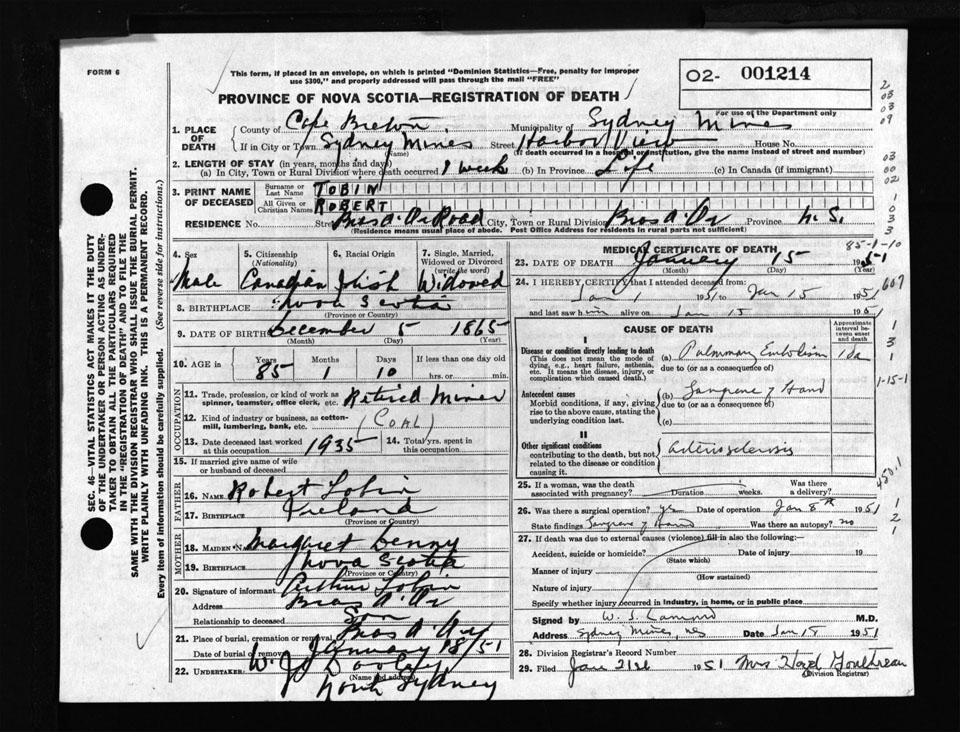 FORM 6
This form, if placed in an envelope, on which is printed "Dominion Statistics—Free, penalty for improper
use $300," and properly addressed will pass through the mail "FREE"
O2- 001214
For use of the Department only
PROVINCE OF NOVA SCOTIA—REGISTRATION OF DEATH
1. PLACE OF DEATH
County of Cape Breton Municipality of Sydney Mines
If in City or Town Sydney Mines Street Harbor View House No.
(Name) (If death occurred in a hospital or institution, give the name instead of street and number)
2. LENGTH OF STAY (in years, months and days)
(a) In City, Town or Rural Division where death occurred 1 week (b) In Province Life (c) In Canada (if immigrant)
3. PRINT NAME OF DECEASED
Surname or Last Name TOBIN
All Given or Christian Names ROBERT
RESIDENCE No. Bras d'Or Road City, Town or Rural Division Bras d'Or Province N.S.
(Residence means usual place of abode. Post Office Address for rural parts not sufficient)
4. Sex 5. Citizenship (Nationality) 6. Racial Origin 7. Single, Married, Widowed or Divorced (write the word)
Male Canadian Irish Widowed
8. BIRTHPLACE Nova Scotia
(Province or Country)
9. DATE OF BIRTH December 5 1865
(Month) (Day) (Year)
10. AGE in Years Months Days If less than one day old
85 1 10 hrs. or min.
OCCUPATION
11. Trade, profession, or kind of work as spinner, teamster, office clerk, etc. Retired Miner
12. Kind of industry or business, as cotton-mill, lumbering, bank, etc. (COAL)
13. Date deceased last worked at this occupation 1935 14. Total yrs. spent in this occupation
15. If married give name of wife or husband of deceased
FATHER
16. NAME Robert Tobin
17. BIRTHPLACE Ireland
(Province or Country)
MOTHER
18. MAIDEN NAME Margaret Denny
19. BIRTHPLACE Nova Scotia
(Province or Country)
20. Signature of informant Arthur Tobin
Address Bras d'Or
Relationship to deceased Son
21. Place of burial, cremation or removal Bras d'Or
Date of burial or removal January 18/51
22. UNDERTAKER W. J. Dooley
(Name and address)
North Sydney
MEDICAL CERTIFICATE OF DEATH
85-1-10
23. DATE OF DEATH January 15 1951
(Month) (Day) (Year)
24. I HEREBY CERTIFY that I attended deceased from
Jan 1 1951 to Jan 15 1951
and last saw him alive on Jan 15 195
CAUSE OF DEATH
Approximate interval between onset and death
I
Disease or condition directly leading to death (a) Pulmonary Embolism 1 da
(This does not mean the mode of dying, e.g., heart failure, asthenia, etc. It means the disease, injury, or complication which caused death.)
due to (or as a consequence of)
Antecedent causes (b) Gangrene of Hand
Morbid conditions, if any, giving rise to the above cause, stating the underlying condition last.
due to (or as a consequence of)
(c)
II
Other significant conditions contributing to the death, but not related to the disease or condition causing it. Arteriosclerosis
25. If a woman, was the death associated with pregnancy? Duration weeks. Was there a delivery?
26. Was there a surgical operation? yes Date of operation Jan 8th 1951
State findings Gangrene of Hand Was there an autopsy? no
27. If death was due to external causes (violence) fill in also the following:—
Accident, suicide or homicide? Date of injury 19
(State which)
Manner of injury
(How sustained)
Nature of injury
Specify whether injury occurred in industry, in home, or in public place
Signed by M.D.
Address Sydney Mines, NS Date Jan 15 1951
28. Division Registrar's Record Number
29. Filed Jan 21st 1951 Mrs
(Division Registrar)
SEC. 46—VITAL STATISTICS ACT MAKES IT THE DUTY
OF THE UNDERTAKER OR PERSON ACTING AS UNDER-
TAKER TO OBTAIN ALL THE PARTICULARS REQUIRED
IN THE "REGISTRATION OF DEATH" AND TO FILE THE
SAME WITH THE DIVISION REGISTRAR WHO SHALL ISSUE THE BURIAL PERMIT.
WRITE PLAINLY WITH UNFADING INK. THIS IS A PERMANENT RECORD.
Every item of information should be carefully supplied. (See reverse side for instructions.)
2
03
03
09
03
00
02
1
0
3
3
607
1
3
1
1-15-1
450.1
1
2
1